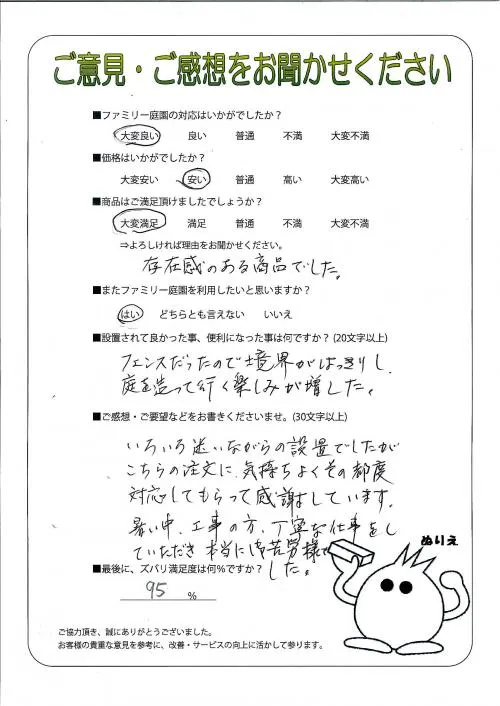 ご意見・ご感想をお聞かせください
■ファミリー庭園の対応はいかがでしたか？
大変良い 良い 普通 不満 大変不満
■価格はいかがでしたか？
大変安い 安い 普通 高い 大変高い
■商品はご満足頂けましたでしょうか？
大変満足 満足 普通 不満 大変不満
⇒よろしければ理由をお聞かせください。
存在感のある商品でした。
■またファミリー庭園を利用したいと思いますか？
はい どちらとも言えない いいえ
■設置されて良かった事、便利になった事は何ですか？(20文字以上)
フェンスだったので境界がはっきりし、
庭を造って行く楽しみが増した。
■ご感想・ご要望などをお書きくださいませ。(30文字以上)
いろいろ迷いながらの設置でしたが
こちらの注文に、気持ちよくその都度
対応してもらって感謝しています。
暑い中、工事の方、丁寧な仕事をし
ていただき本当に御苦労様で
した。
ぬりえ
■最後に、ズバリ満足度は何％ですか？
95 %
ご協力頂き、誠にありがとうございました。
お客様の貴重な意見を参考に、改善・サービスの向上に活かして参ります。